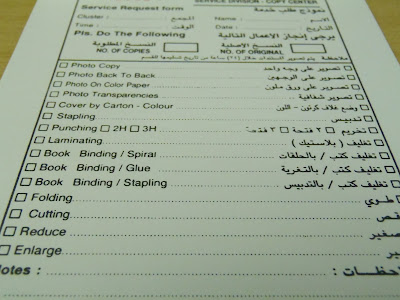 SERVICE DIVISION - COPY CENTER
Service Request form نموذج طلب خدمة
Cluster : المجمع Name : الاسم
Time : الوقت Date : التاريخ
Pls. Do The Following يرجى إنجاز الأعمال التالية
النسخ المطلوبة النسخ الأصلية
NO. OF COPIES NO. OF ORIGINAL
Photo Copy تصوير على وجه واحد
Photo Back To Back تصوير على الوجهين
Photo On Color Paper تصوير على ورق ملون
Photo Transparencies تصوير شفافية
Cover by Carton - Colour وضع غلاف كرتون - اللون
Stapling تدبيس
Punching 2H 3H تخريم ٢ فتحة ٣ فتحة
Laminating تغليف ( بلاستيك )
Book Binding / Spiral تغليف كتب / بالحلقات
Book Binding / Glue تغليف كتب / بالتغرية
Book Binding / Stapling تغليف كتب / بالتدبيس
Folding طوي
Cutting قص
Reduce
Enlarge